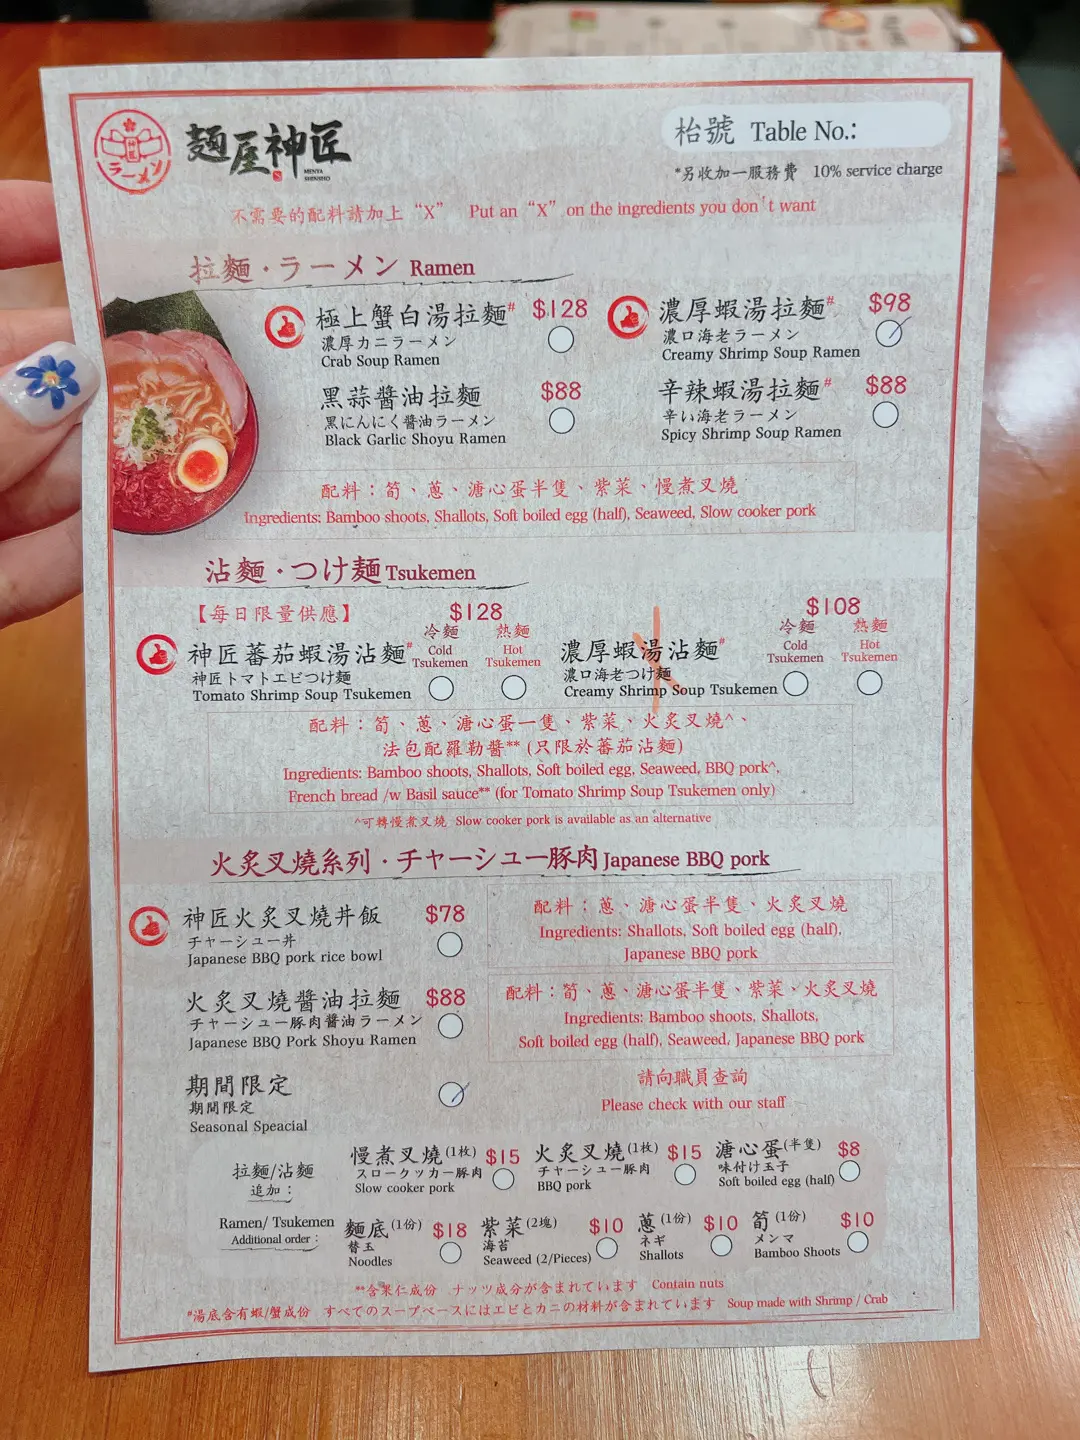 麵屋神匠
MENYA SHINSHO
ラーメン
枱號 Table No.:
*另收加一服務費 10% service charge
不需要的配料請加上“X” Put an“X”on the ingredients you don't want
拉麵・ラーメン Ramen
極上蟹白湯拉麵# $128
濃厚カニラーメン
Crab Soup Ramen
濃厚蝦湯拉麵# $98
濃口海老ラーメン
Creamy Shrimp Soup Ramen
黑蒜醬油拉麵 $88
黒にんにく醬油ラーメン
Black Garlic Shoyu Ramen
辛辣蝦湯拉麵# $88
辛い海老ラーメン
Spicy Shrimp Soup Ramen
配料：筍、蔥、溏心蛋半隻、紫菜、慢煮叉燒
Ingredients: Bamboo shoots, Shallots, Soft boiled egg (half), Seaweed, Slow cooker pork
沾麵・つけ麵 Tsukemen
【每日限量供應】
$128
冷麵 熱麵
Cold Tsukemen
Hot Tsukemen
神匠蕃茄蝦湯沾麵#
神匠トマトエビつけ麵
Tomato Shrimp Soup Tsukemen
$108
冷麵 熱麵
Cold Tsukemen
Hot Tsukemen
濃厚蝦湯沾麵#
濃口海老つけ麵
Creamy Shrimp Soup Tsukemen
配料：筍、蔥、溏心蛋一隻、紫菜、火炙叉燒^、
法包配羅勒醬** (只限於蕃茄沾麵)
Ingredients: Bamboo shoots, Shallots, Soft boiled egg, Seaweed, BBQ pork^,
French bread /w Basil sauce** (for Tomato Shrimp Soup Tsukemen only)
^可轉慢煮叉燒 Slow cooker pork is available as an alternative
火炙叉燒系列・チャーシュー豚肉 Japanese BBQ pork
神匠火炙叉燒丼飯 $78
チャーシュー丼
Japanese BBQ pork rice bowl
配料：蔥、溏心蛋半隻、火炙叉燒
Ingredients: Shallots, Soft boiled egg (half),
Japanese BBQ pork
火炙叉燒醬油拉麵 $88
チャーシュー豚肉醬油ラーメン
Japanese BBQ Pork Shoyu Ramen
配料：筍、蔥、溏心蛋半隻、紫菜、火炙叉燒
Ingredients: Bamboo shoots, Shallots,
Soft boiled egg (half), Seaweed, Japanese BBQ pork
期間限定
期間限定
Seasonal Speacial
請向職員查詢
Please check with our staff
拉麵/沾麵
追加：
Ramen/ Tsukemen
Additional order：
慢煮叉燒(1枚) $15
スロークッカー豚肉
Slow cooker pork
火炙叉燒(1枚) $15
チャーシュー豚肉
BBQ pork
溏心蛋(半隻) $8
味付け玉子
Soft boiled egg (half)
麵底(1份) $18
替玉
Noodles
紫菜(2塊) $10
海苔
Seaweed (2/Pieces)
蔥(1份) $10
ネギ
Shallots
筍(1份) $10
メンマ
Bamboo Shoots
**含果仁成份 ナッツ成分が含まれています Contain nuts
#湯底含有蝦/蟹成份 すべてのスープベースにはエビとカニの材料が含まれています Soup made with Shrimp / Crab